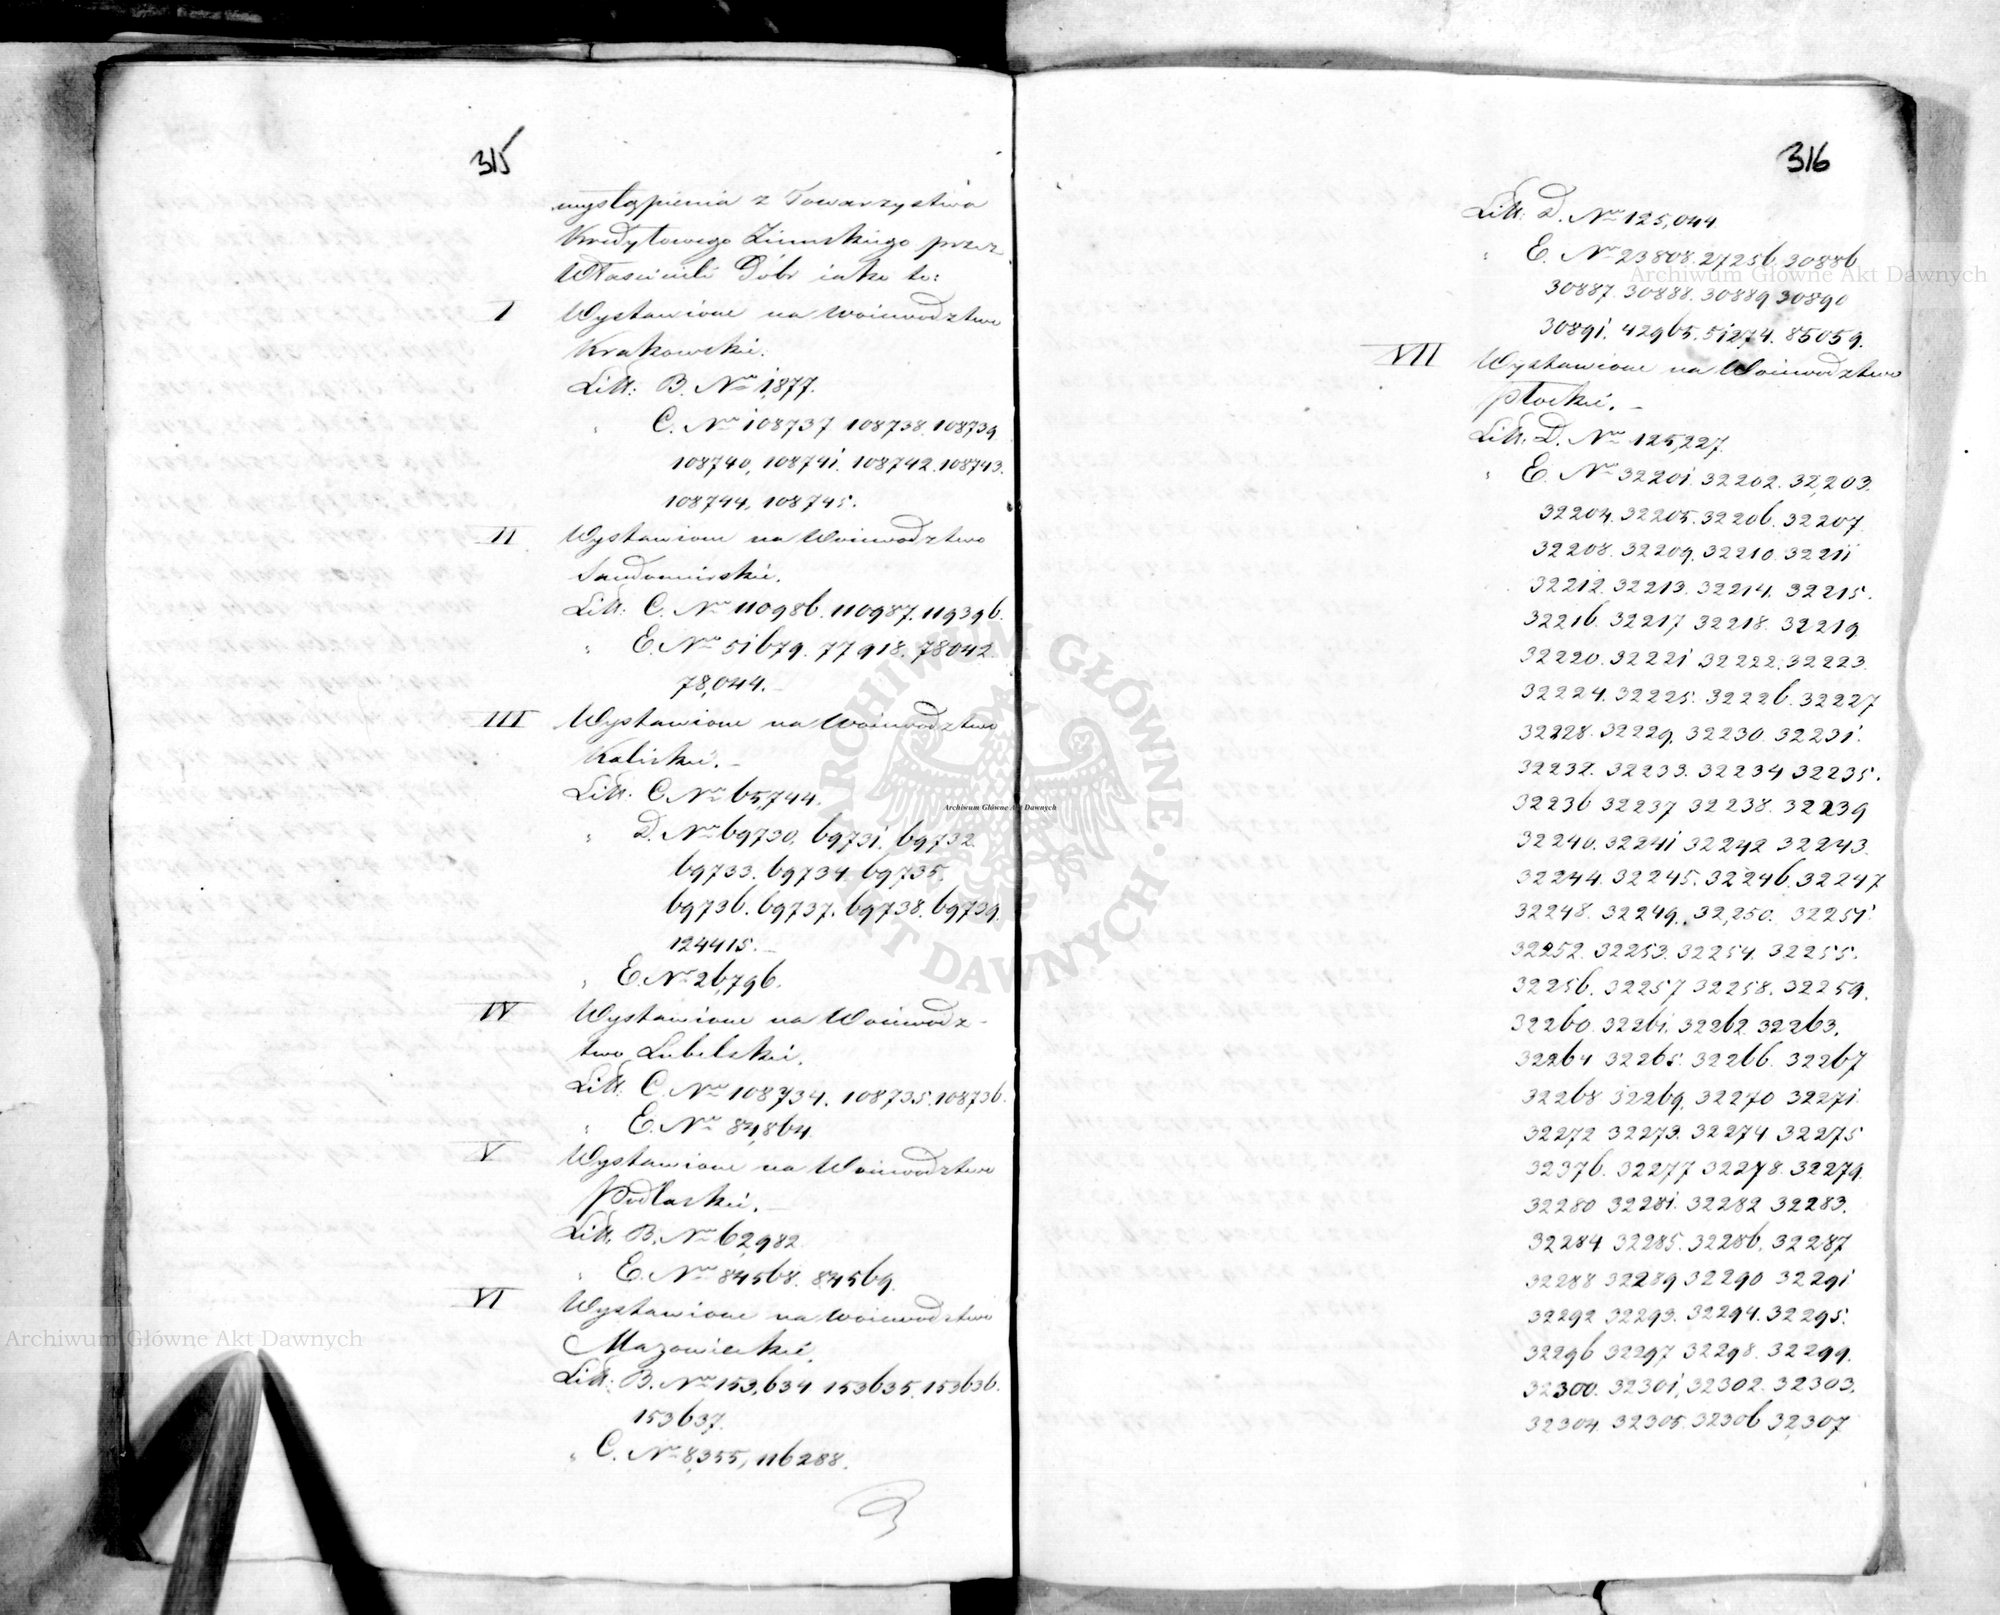 315
wystąpienia z Towarzystwa
Kredytowego Ziemskiego przez
Właścicieli Dóbr iako to:
I Wystawione na Woiewodztwo
Krakowskie.
Litt: B. Nro 1,877.
" C. Nro 108737 108738. 108739
108740, 108741. 108742. 108743.
108744, 108745.
II Wystawione na Woiewodztwo
Sandomirskie.
Litt: C. Nro 110986. 110987. 119396.
" E. Nro 51679. 77918. 78042.
78,044.
III Wystawione na Woiewodztwo
Kaliskie. –
Litt: C. Nro 65,744.
" D. Nro 69730. 69731. 69732.
69733. 69734. 69735.
69736. 69737. 69738. 69739.
124415. –
" E. Nro 26,796.
IV Wystawione na Woiewodz-
two Lubelskie.
Litt: C. Nro 108734. 108735. 108736.
" E. Nro 84,864.
V Wystawione na Woiewodztwo
Podlaskie. –
Litt. B. Nro 62,982.
" E. Nro 84568. 84569.
VI Wystawione na Woiewodztwo
Mazowieckie.
Litt: B. Nro 153,634 153635, 153636.
153637.
" C. Nro 8,355, 116288.
316
Litt: D. Nro 125,044.
" E. Nro 23808. 27256. 30886
30887. 30888. 30889 30890
30891. 42965. 51274. 85059.
VII Wystawione na Woiewodztwo
Płockie. –
Litt. D. Nro 125,227.
" E. Nro 32201. 32202. 32,203.
32204. 32205. 32206. 32207
32208. 32209. 32210. 32211
32212. 32213. 32214. 32215.
32216. 32217 32218. 32219
32220. 32221 32222. 32223.
32224. 32225. 32226. 32227
32228. 32229. 32230. 32231.
32232. 32233. 32234 32235.
32236 32237 32238. 32239
32240. 32241 32242 32243.
32244. 32245. 32246. 32247
32248. 32249. 32,250. 32251.
32252. 32253. 32254. 32255.
32256. 32257 32258. 32259.
32260. 32261. 32262. 32263.
32264 32265. 32266. 32267
32268 32269. 32270 32271
32272 32273. 32274. 32275
32376. 32277 32278. 32279.
32280 32281. 32282 32283.
32284 32285. 32286. 32287
32288 32289 32290 32291
32292 32293. 32294. 32295.
32296 32297 32298. 32299.
32300. 32301, 32302. 32303.
32304. 32305. 32306 32,307
Archiwum Główne Akt Dawnych
ARCHIWUM GŁÓWNE · AKT DAWNYCH ·
Archiwum Główne Akt Dawnych
Archiwum Główne Akt Dawnych